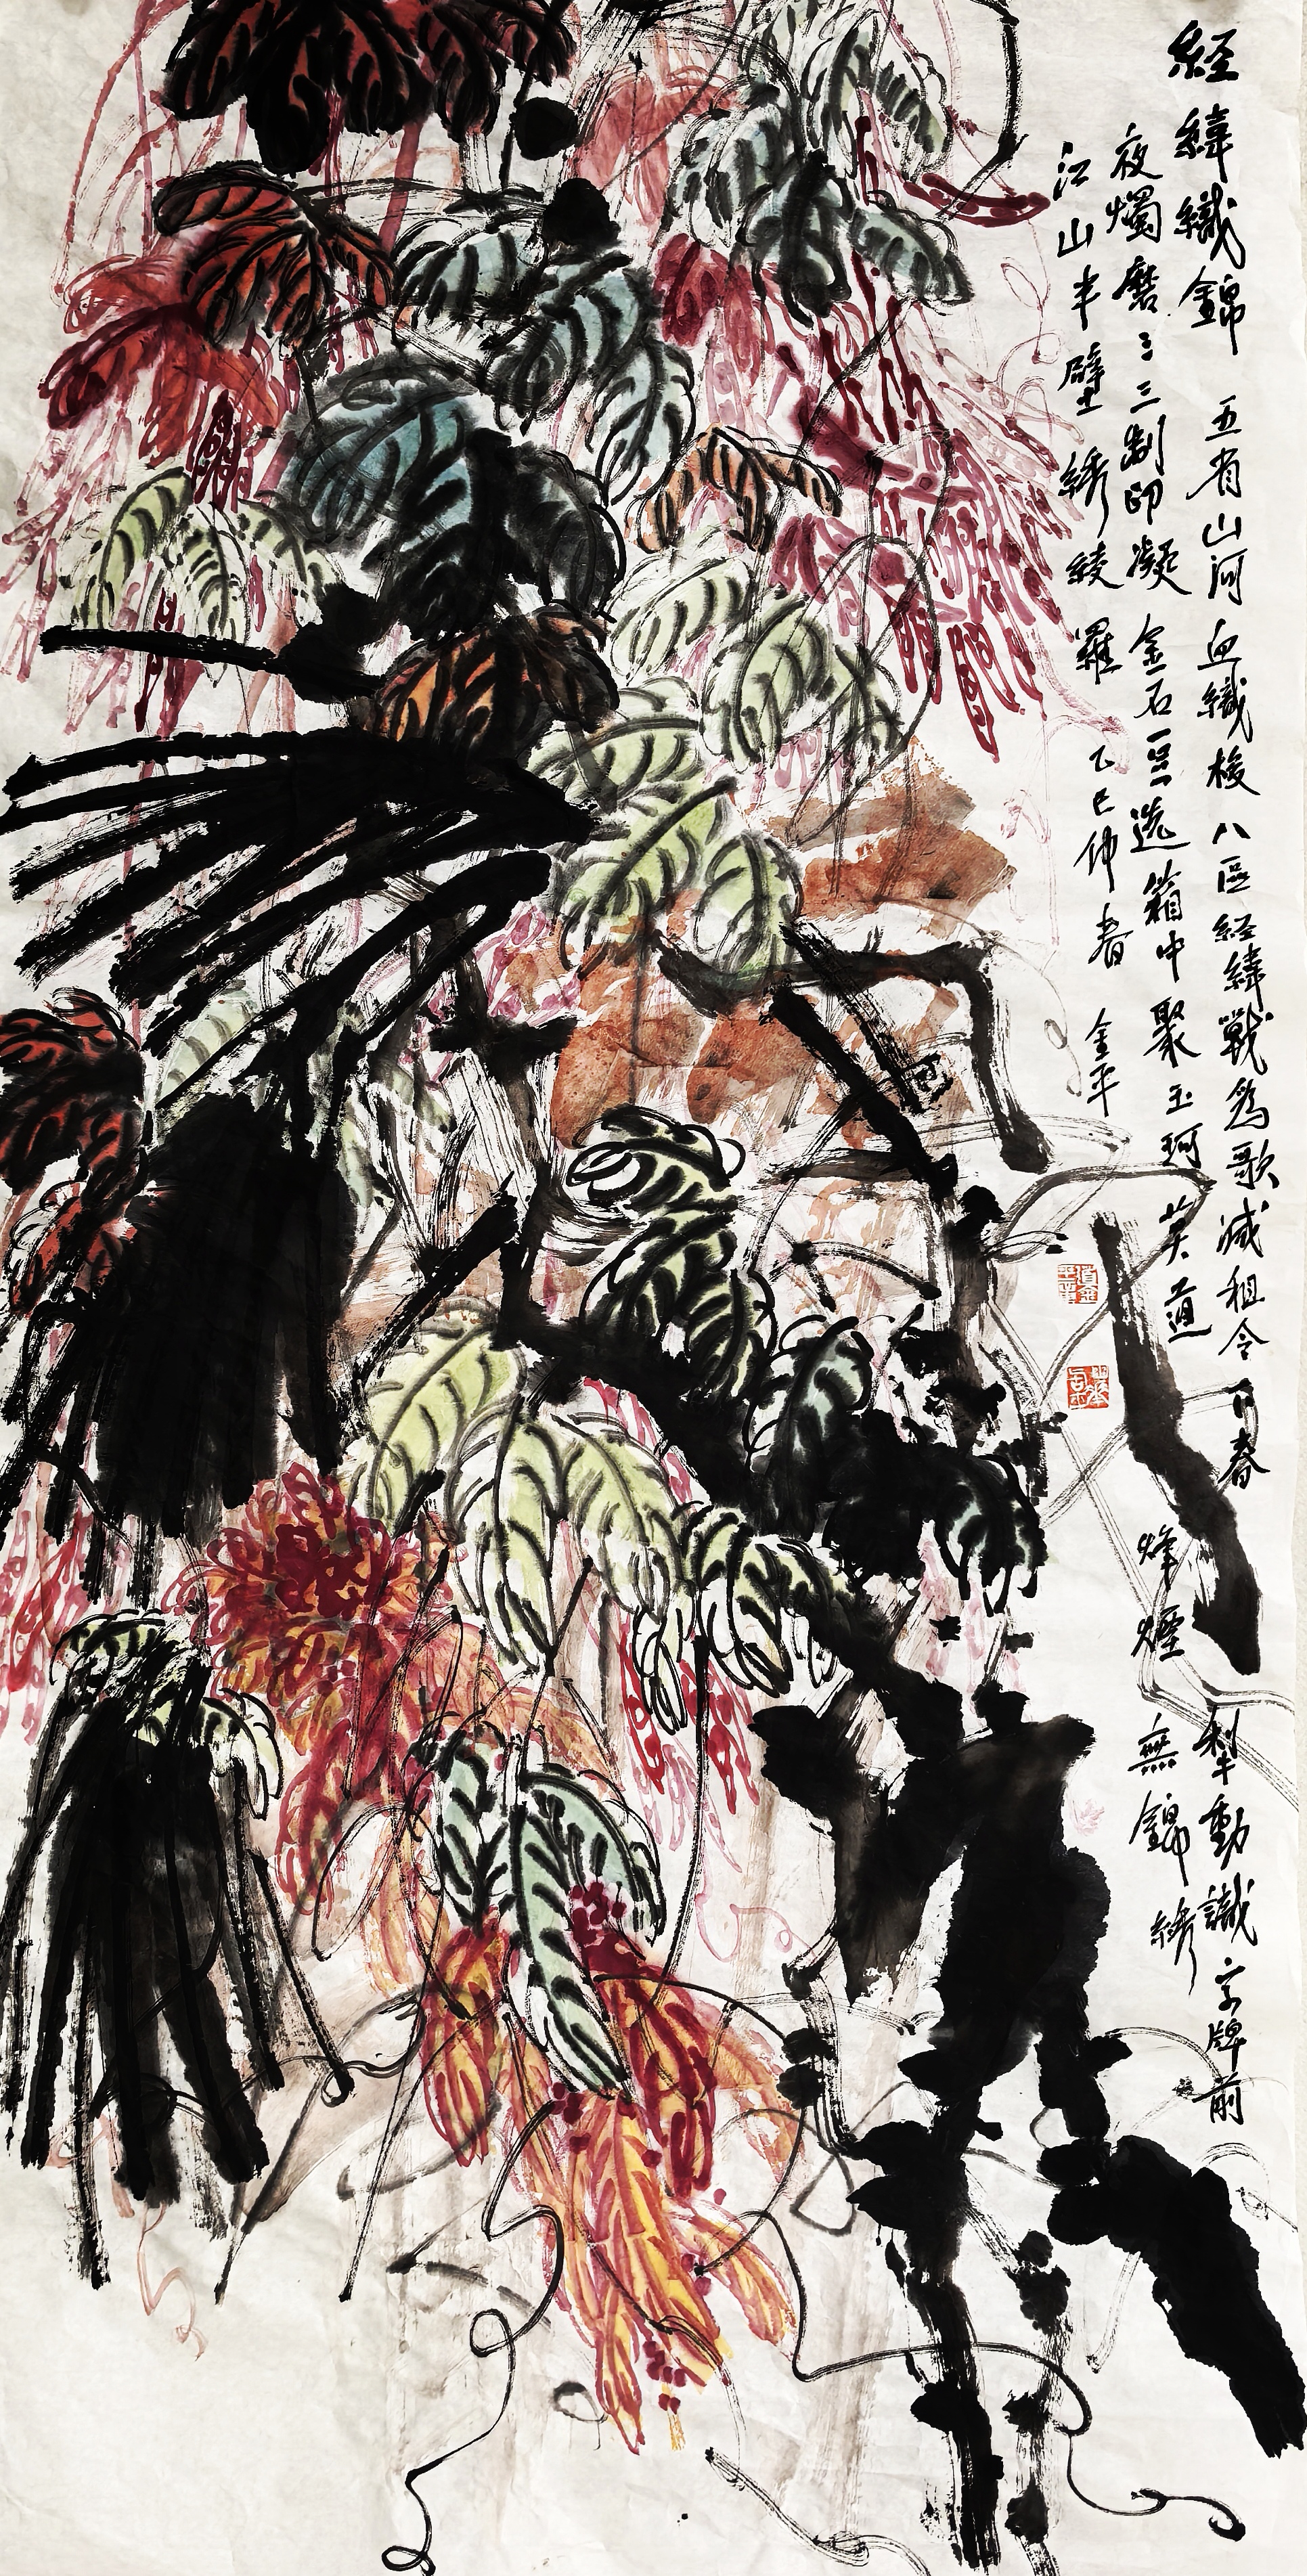 経緯織錦 五省山河血織梭 八區経緯戰為歌 減租令下春犁動 識字牌前
夜燭磨 三三制印凝金石 豆选箱中聚玉珂 莫道烽煙無錦綉
江山半壁綉綾羅 乙巳仲春 金平